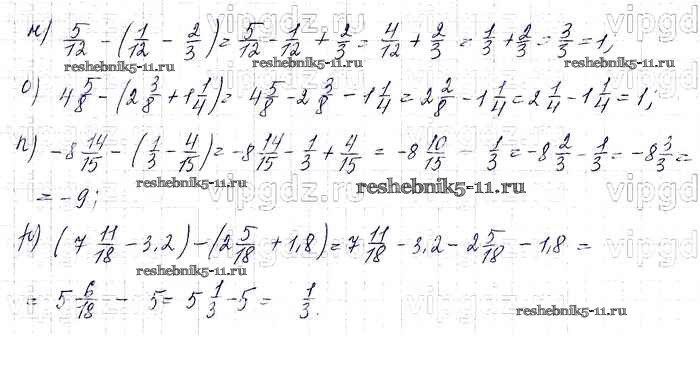 н) 5/12 - (1/12 - 2/3) = 5/12 - 1/12 + 2/3 = 4/12 + 2/3 = 1/3 + 2/3 = 3/3 = 1;
reshebnik5-11.ru reshebnik5-11.ru
о) 4 5/8 - (2 3/8 + 1 1/4) = 4 5/8 - 2 3/8 - 1 1/4 = 2 2/8 - 1 1/4 = 2 1/4 - 1 1/4 = 1;
п) -8 14/15 - (1/3 - 4/15) = -8 14/15 - 1/3 + 4/15 = -8 10/15 - 1/3 = -8 2/3 - 1/3 = -8 3/3 =
reshebnik5-11.ru reshebnik5-11.ru
= -9;
р) (7 11/18 - 3,2) - (2 5/18 + 1,8) = 7 11/18 - 3,2 - 2 5/18 - 1,8 =
reshebnik5-11.ru
= 5 6/18 - 5 = 5 1/3 - 5 = 1/3.
reshebnik5-11.ru
vipgdz.ru